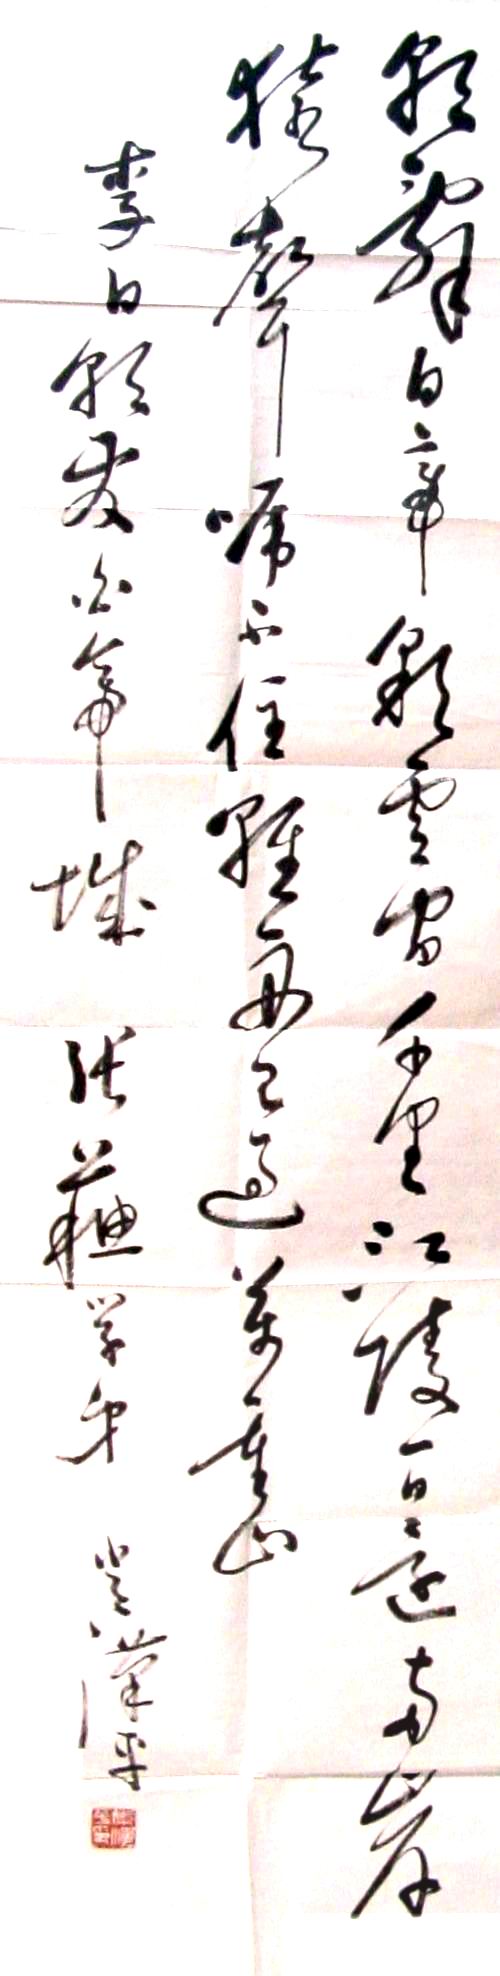 朝辞白帝彩云间千里江陵一日还两岸
猿声啼不住轻舟已过万重山
李白朝发白帝城 张苏学弟 汉平